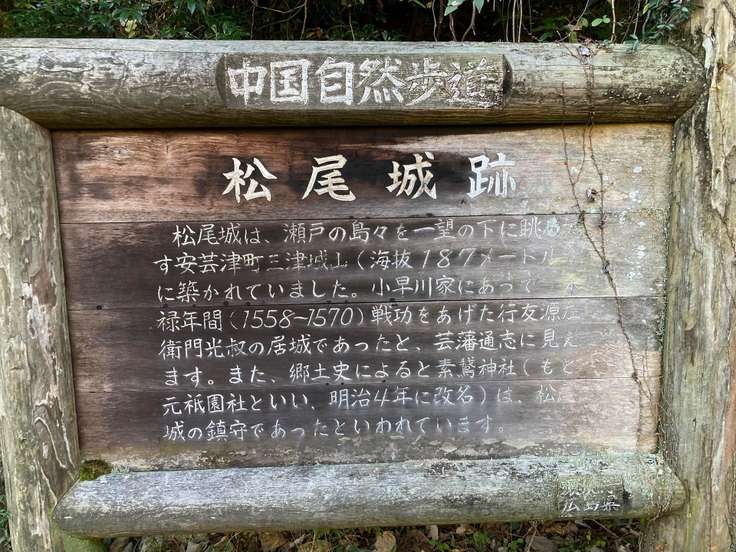 中国自然歩道
松尾城跡
松尾城は、瀬戸の島々を一望の下に眺め
す安芸津町三津城山(海抜187メートル
に築かれていました。小早川家にあって
禄年間(1558-1570)戦功をあげた行友源左
衛門光叔の居城であったと、芸藩通志に見え
ます。また、郷土史によると素鵞神社(もと
元祇園社といい、明治4年に改名)は、松
城の鎮守であったといわれています。
広島県